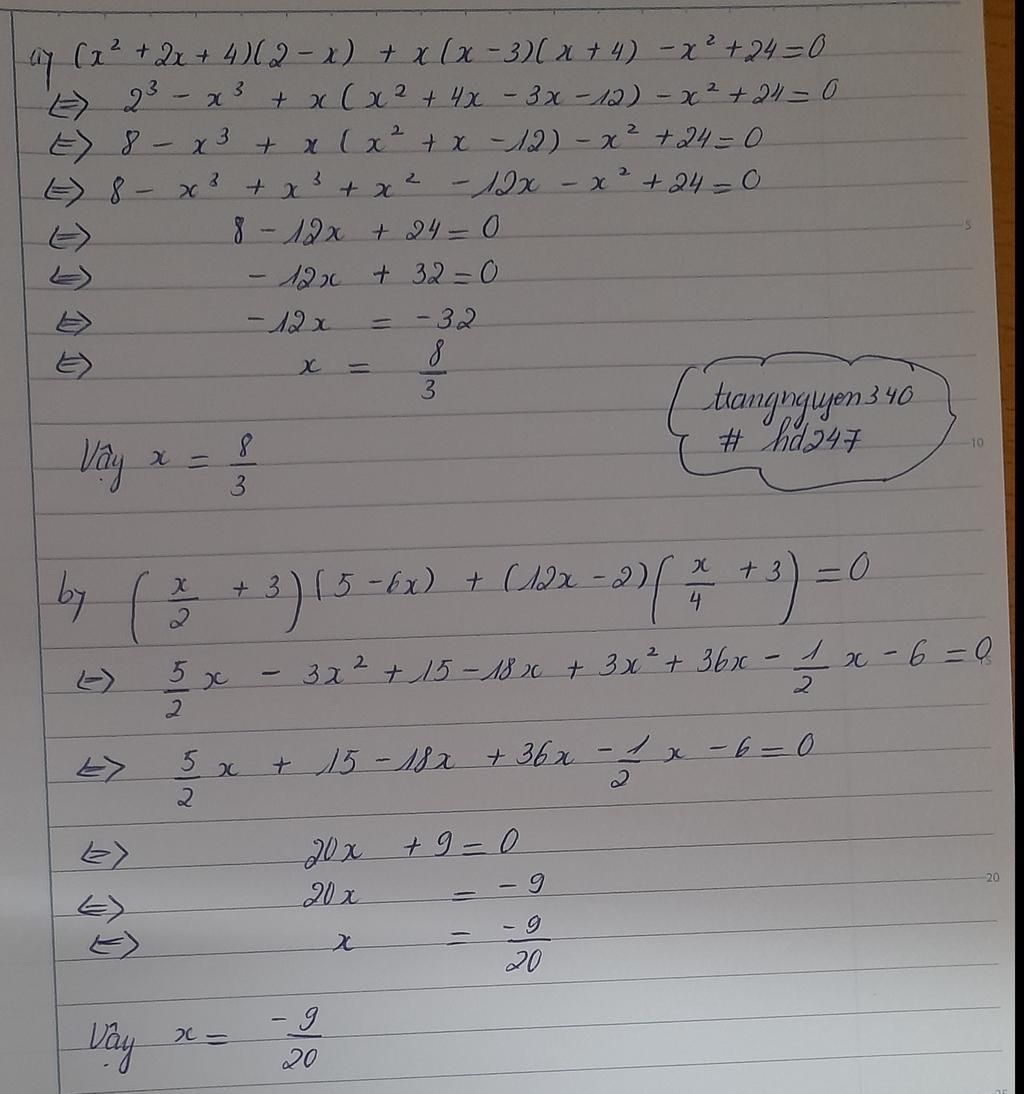 a) (x² + 2x + 4)(2 - x) + x(x - 3)(x + 4) - x² + 24 = 0
<=> 2³ - x³ + x(x² + 4x - 3x - 12) - x² + 24 = 0
<=> 8 - x³ + x(x² + x - 12) - x² + 24 = 0
<=> 8 - x³ + x³ + x² - 12x - x² + 24 = 0
<=> 8 - 12x + 24 = 0
<=> - 12x + 32 = 0
<=> -12x = -32
<=> x = 8/3
trangnguyen340
# hd247
Vậy x = 8/3
b) (x/2 + 3)(5 - 6x) + (12x - 2)(x/4 + 3) = 0
<=> 5/2 x - 3x² + 15 - 18x + 3x² + 36x - 1/2 x - 6 = 0
<=> 5/2 x + 15 - 18x + 36x - 1/2 x - 6 = 0
<=> 20x + 9 = 0
<=> 20x = -9
<=> x = -9/20
Vậy x = -9/20
5
10
20